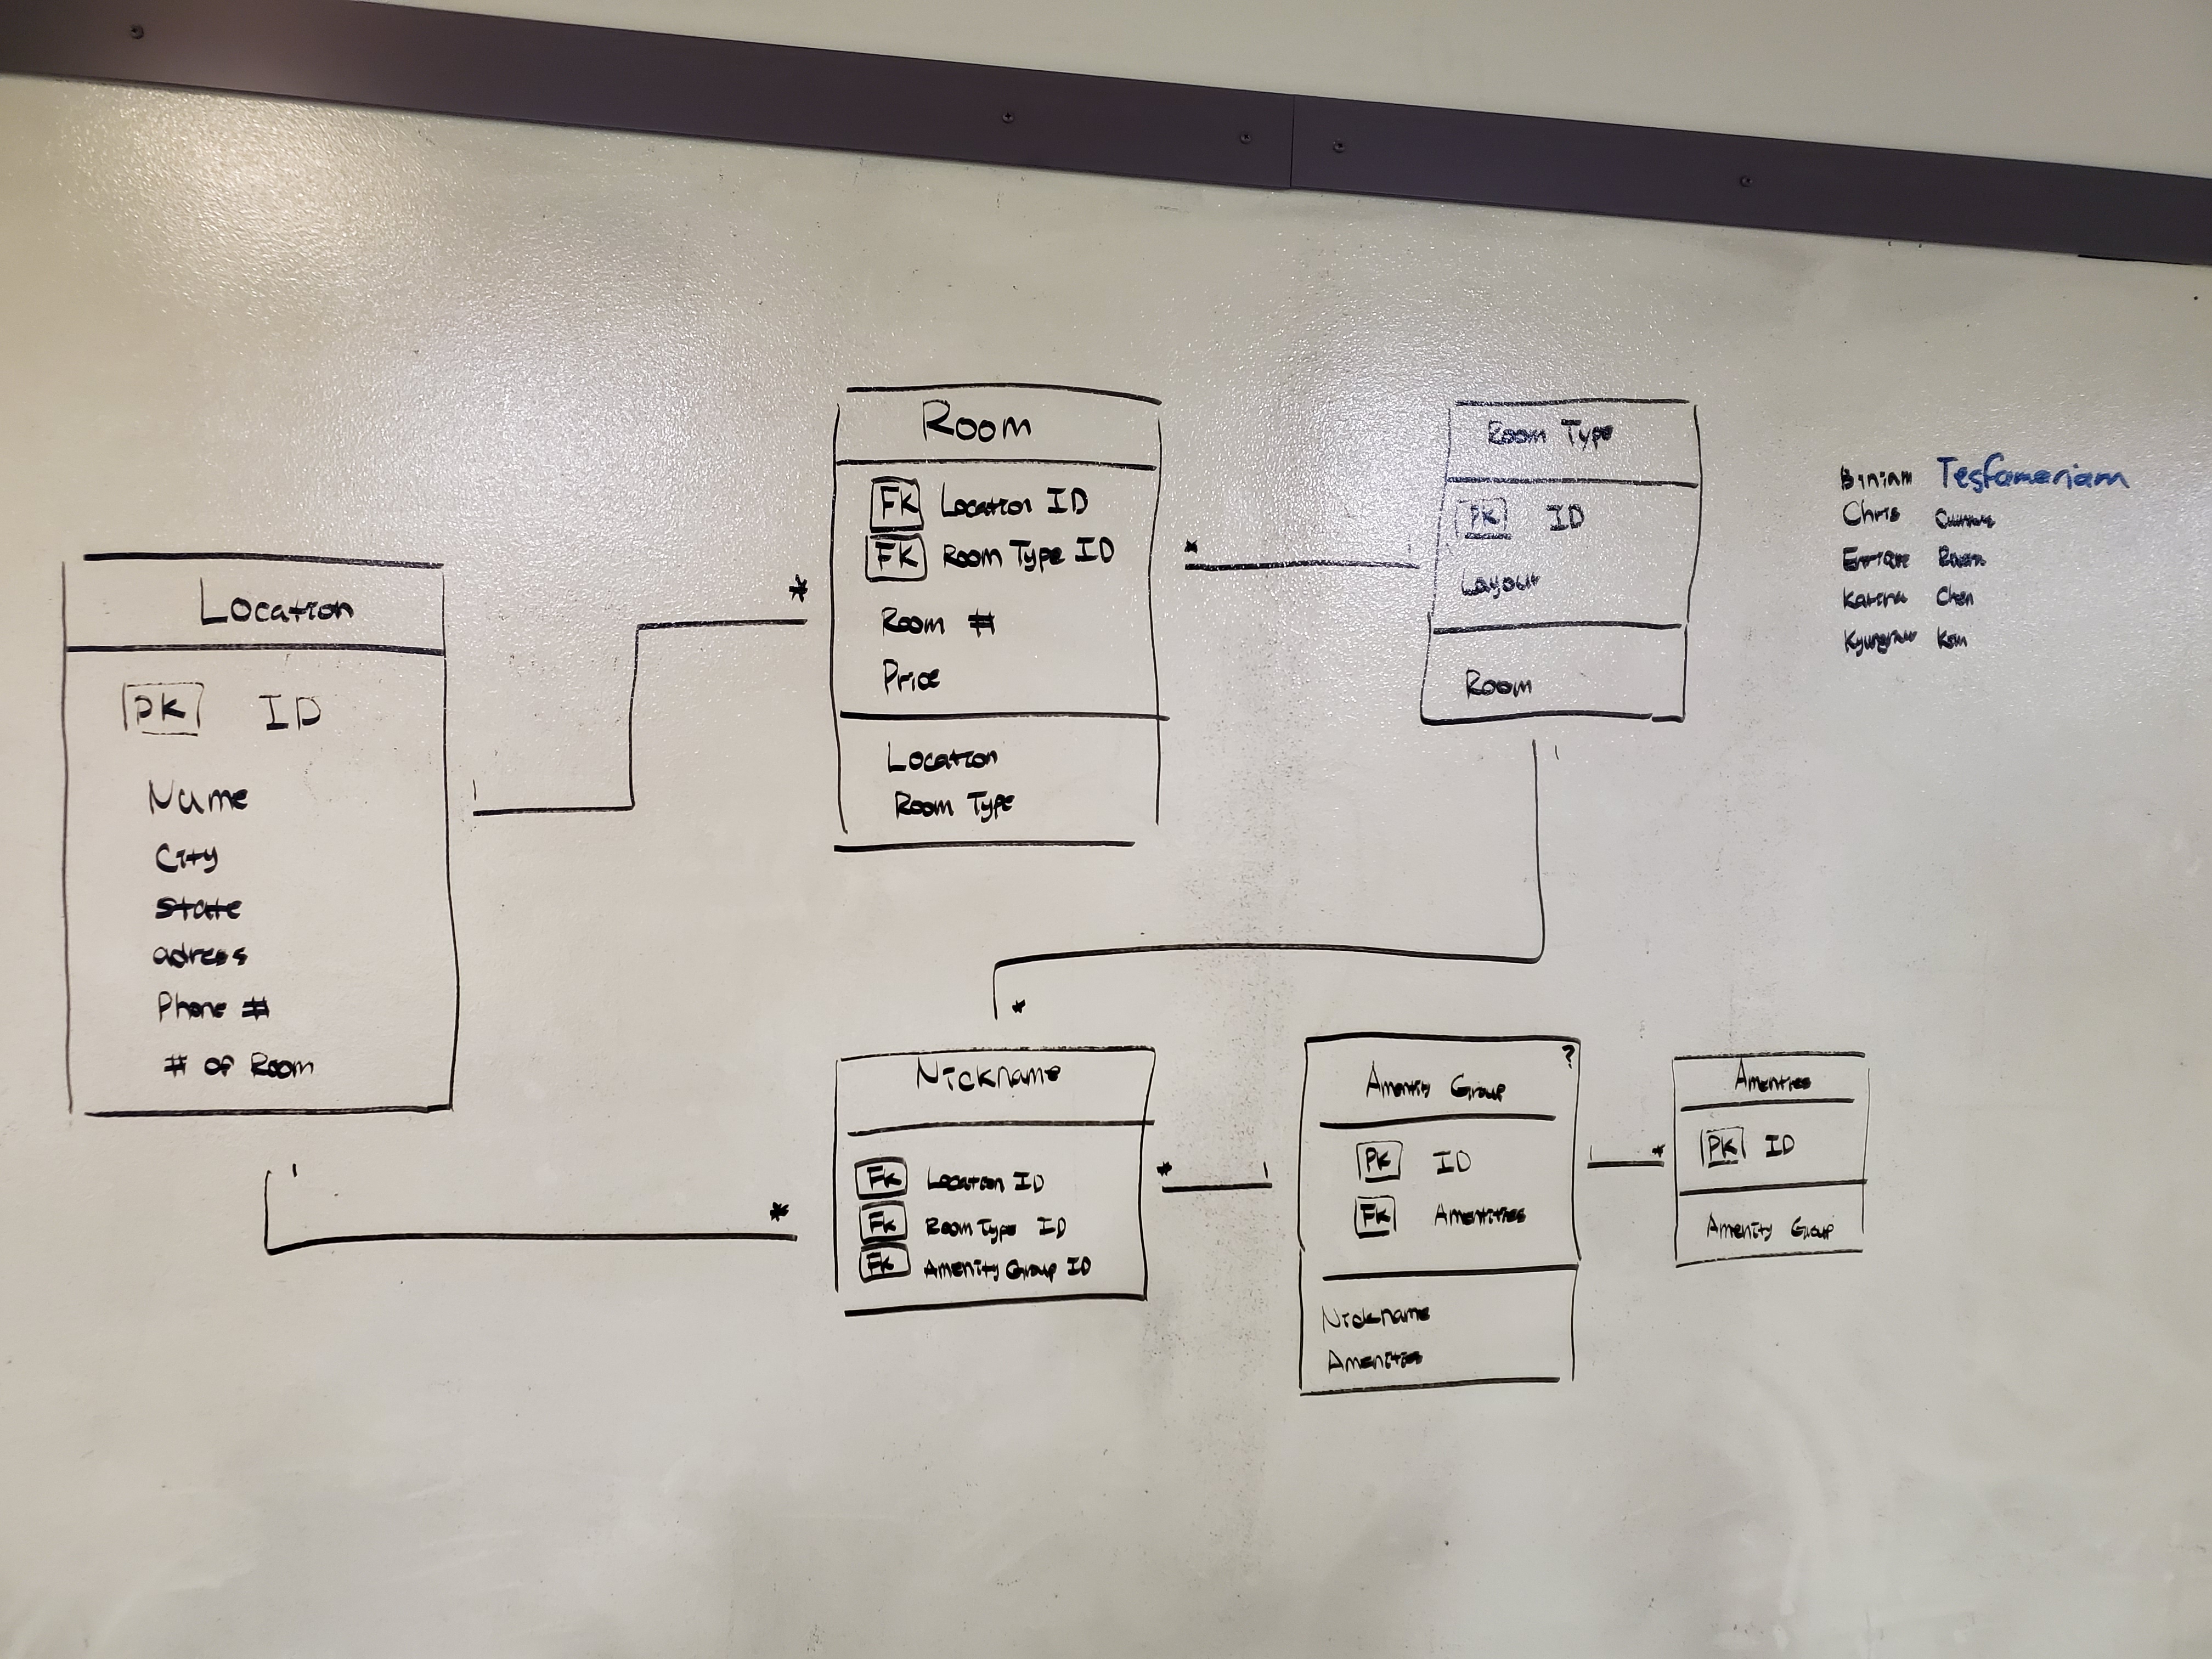 Location
PK ID
Name
City
State
adress
Phone #
# of Room
1
*
Room
FK Location ID
FK Room Type ID
Room #
Price
Location
Room Type
*
1
Room Type
PK ID
Layout
Room
Biniam Tesfamariam
Chris
Enrique
Katina Chen
Kim
1
*
1
*
Nickname
FK Location ID
FK Room Type ID
FK Amenity Group ID
*
1
Amenity Group
?
PK ID
FK Amenitites
Nickname
Amenities
1
*
Amenties
PK ID
Amenity Group